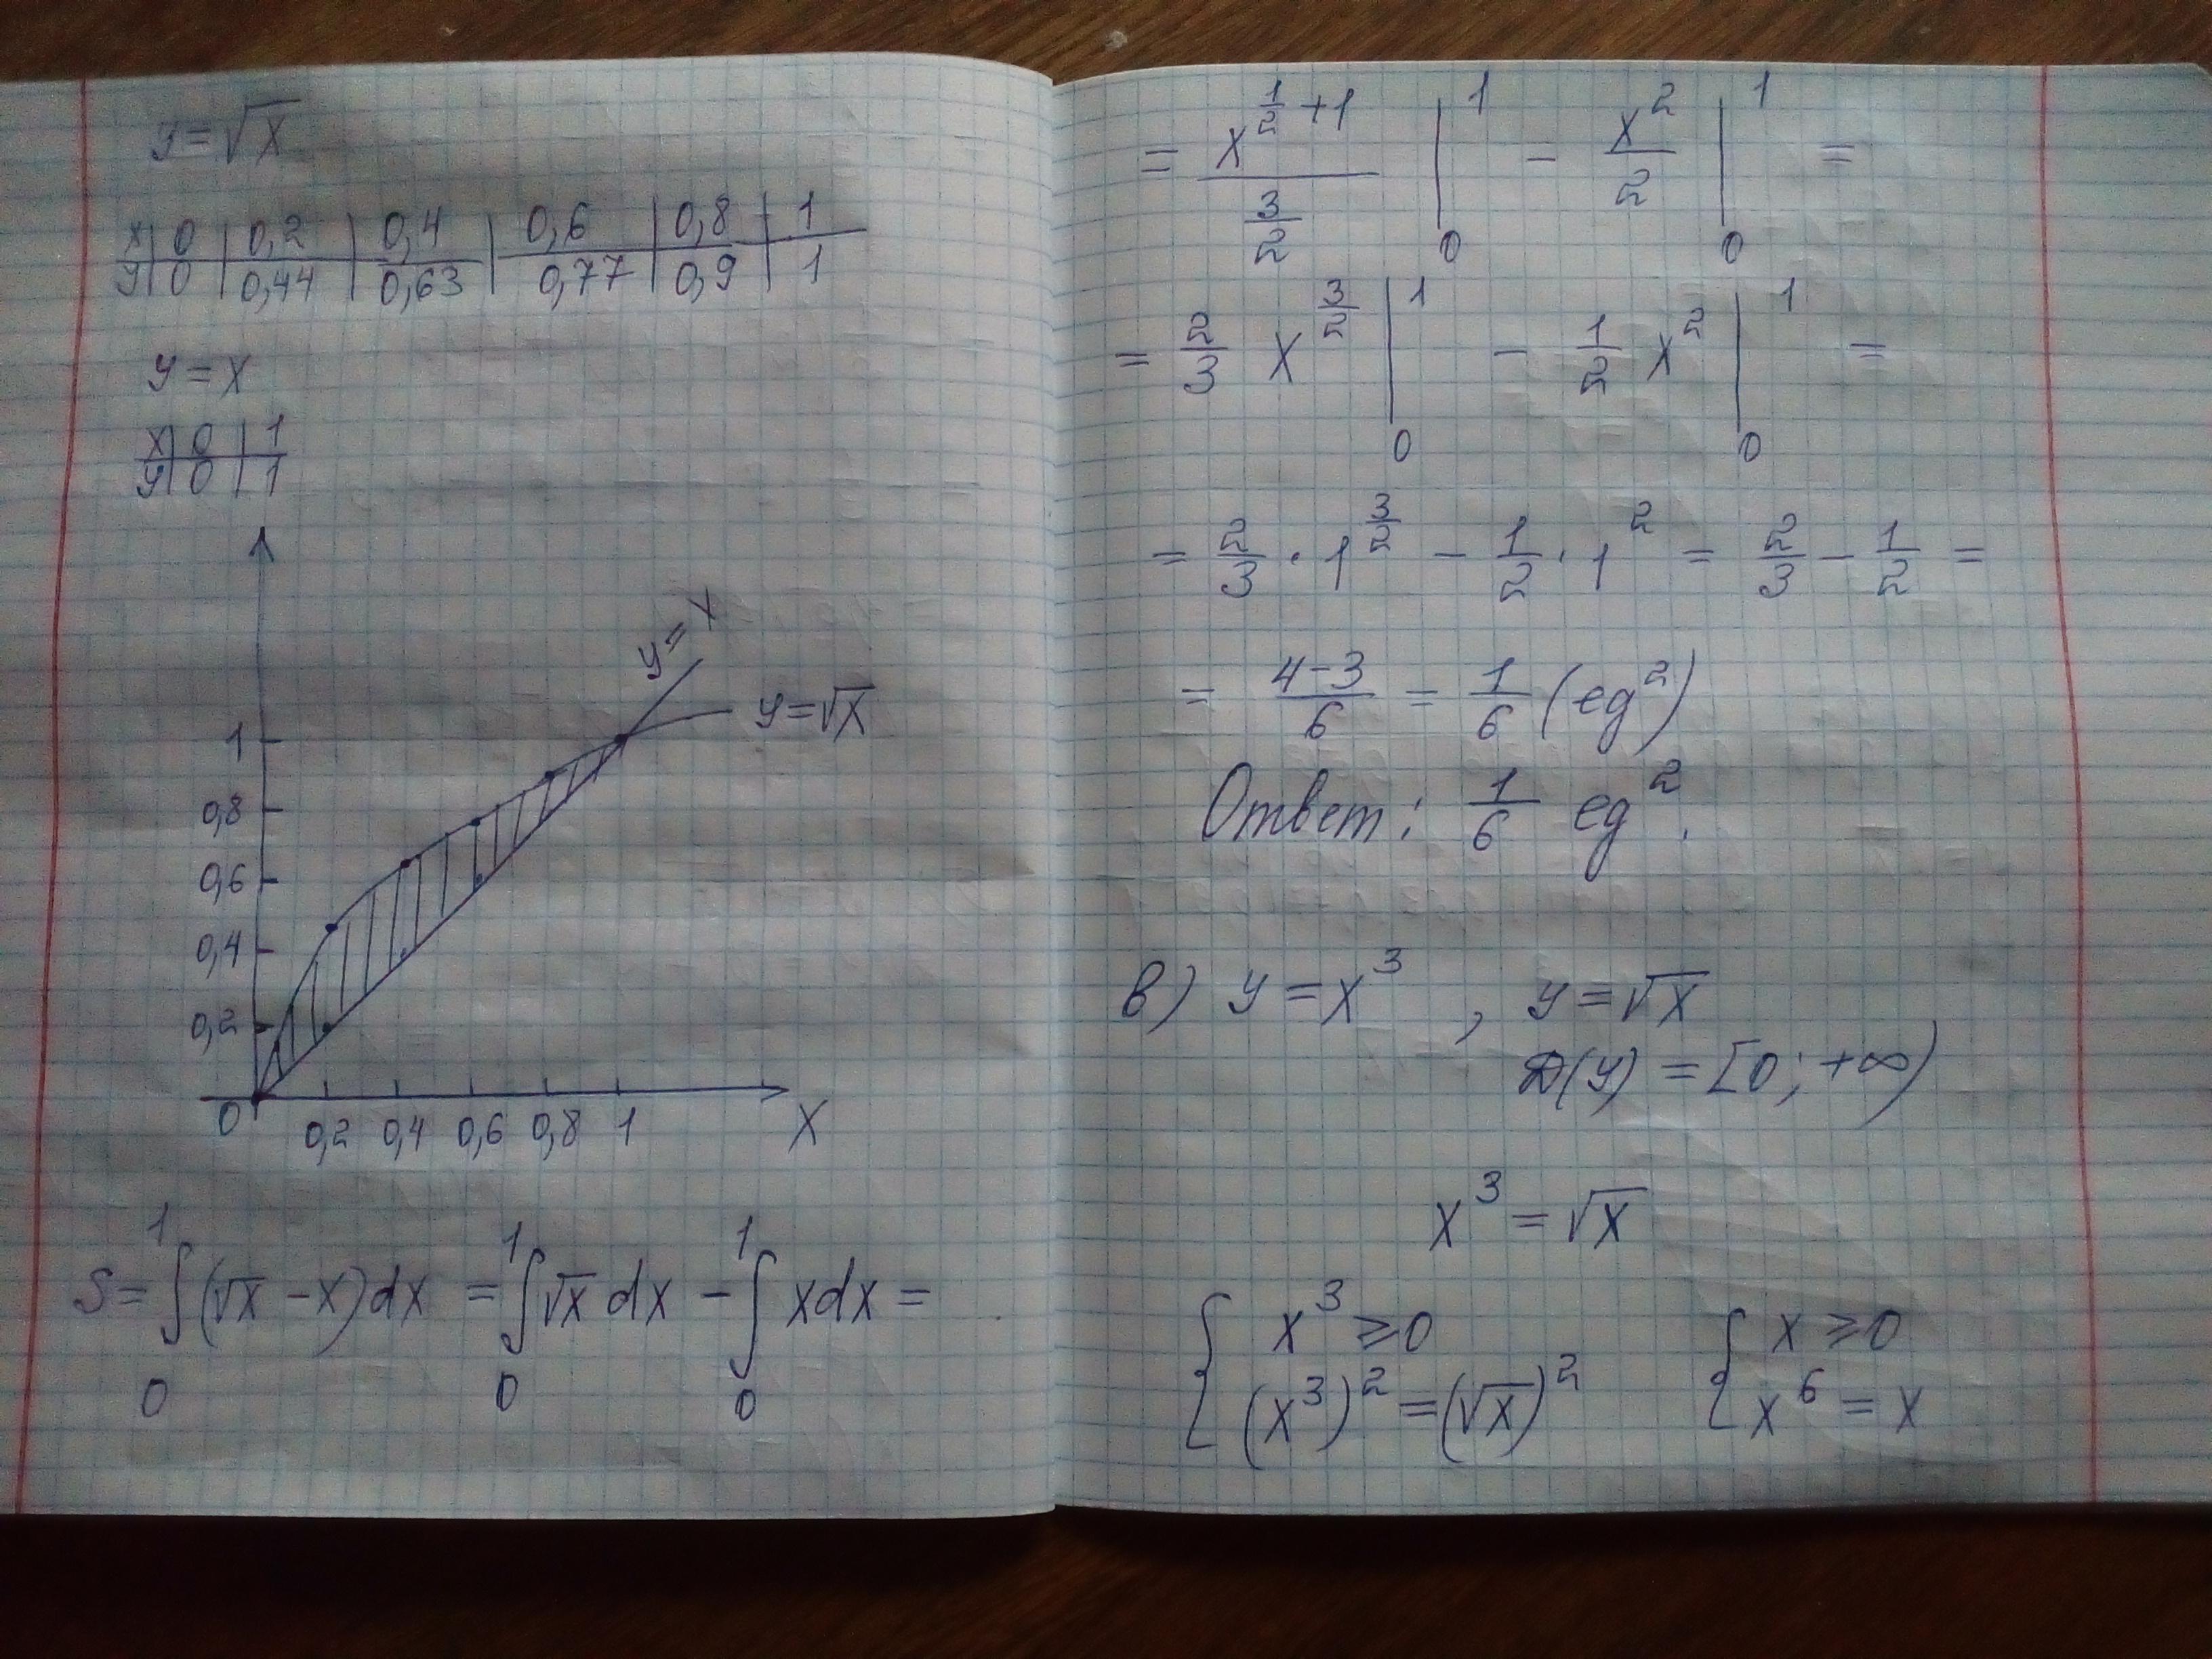 y = √x
x | 0 | 0,2 | 0,4 | 0,6 | 0,8 | 1
y | 0 | 0,44 | 0,63 | 0,77 | 0,9 | 1
y = x
x | 0 | 1
y | 0 | 1
y = x
y = √x
1
0,8
0,6
0,4
0,2
0 0,2 0,4 0,6 0,8 1 x
S = ∫₀¹ (√x − x)dx = ∫₀¹ √x dx − ∫₀¹ xdx =
= x^(1/2 + 1) / (3/2) |₀¹ − x²/2 |₀¹ =
= 2/3 x^(3/2) |₀¹ − 1/2 x² |₀¹ =
= 2/3 · 1^(3/2) − 1/2 · 1² = 2/3 − 1/2 =
= (4−3)/6 = 1/6 (ед²)
Ответ: 1/6 ед².
в) y = x³ , y = √x
D(y) = [0; +∞)
x³ = √x
{ x³ ⩾ 0 { x ⩾ 0
(x³)² = (√x)² x⁶ = x